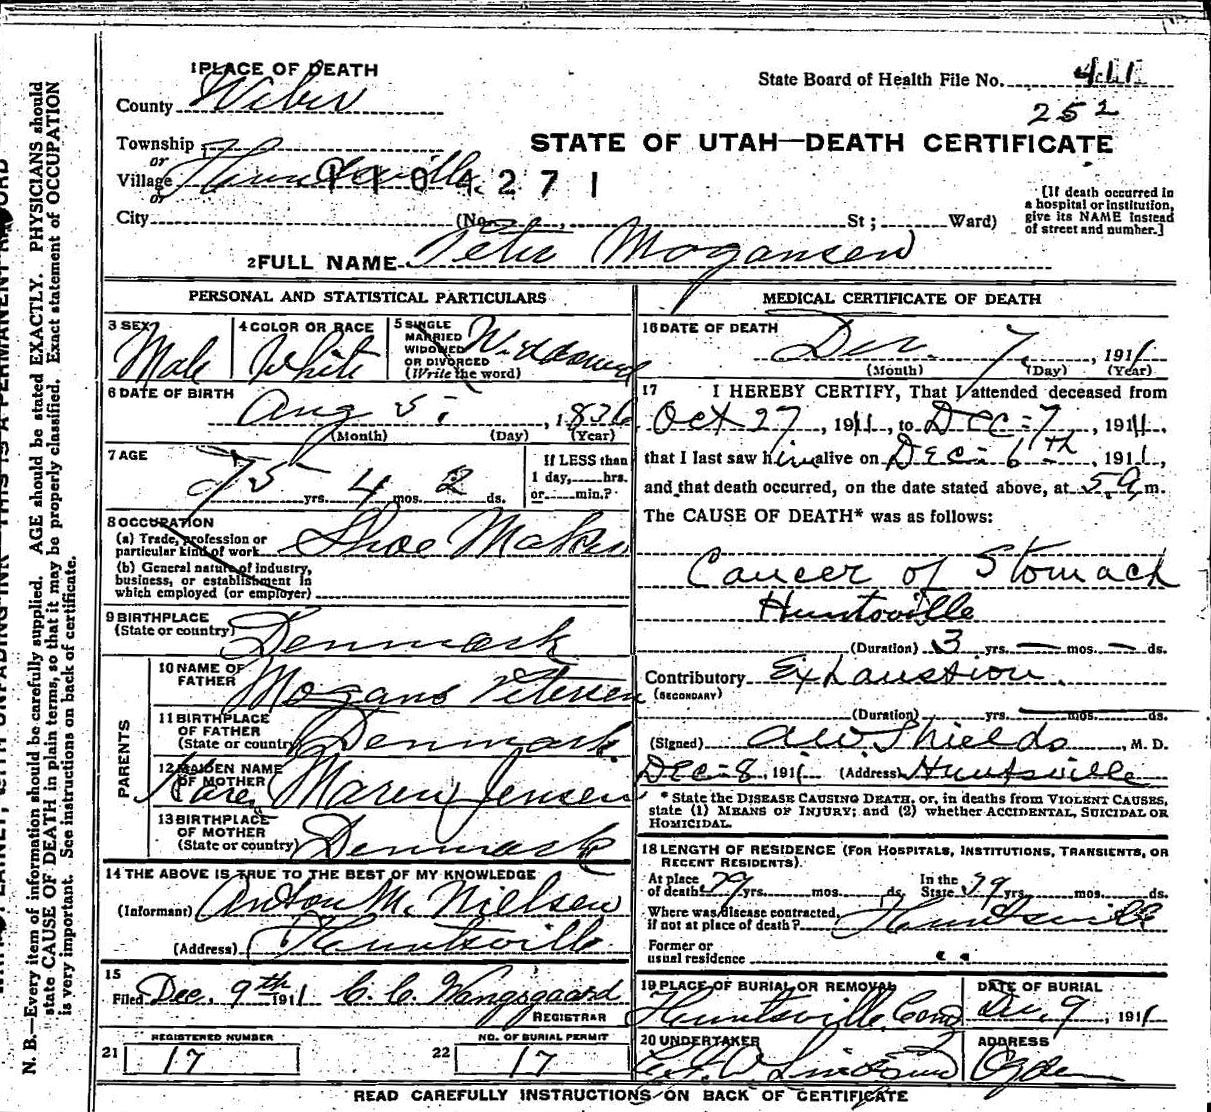 1 PLACE OF DEATH
State Board of Health File No. 411
County Weber
252
STATE OF UTAH—DEATH CERTIFICATE
Township
or
Village Huntsville
1104271
or
City (No. , St ; Ward)
[If death occurred in
a hospital or institution,
give its NAME instead
of street and number.]
2 FULL NAME Peter Mogansen
PERSONAL AND STATISTICAL PARTICULARS
3 SEX Male
4 COLOR OR RACE White
5 SINGLE
MARRIED
WIDOWED
OR DIVORCED
(Write the word) Widowed
6 DATE OF BIRTH
Aug 5, , 1836
(Month) (Day) (Year)
7 AGE
75 yrs. 4 mos. 2 ds.
If LESS than
1 day, hrs.
or min.?
8 OCCUPATION
(a) Trade, profession or
particular kind of work Shoe Maker
(b) General nature of industry,
business, or establishment in
which employed (or employer)
9 BIRTHPLACE
(State or country) Denmark
PARENTS
10 NAME OF
FATHER Mogans Petersen
11 BIRTHPLACE
OF FATHER
(State or country) Denmark.
12 MAIDEN NAME
OF MOTHER Karen Maren Jensen
13 BIRTHPLACE
OF MOTHER
(State or country) Denmark
14 THE ABOVE IS TRUE TO THE BEST OF MY KNOWLEDGE
(Informant) Anton M. Nielsen
(Address) Huntsville
15
Filed Dec. 9th 1911 C. C. Wangsgaard
REGISTRAR
REGISTERED NUMBER
21 17
NO. OF BURIAL PERMIT
22 17
MEDICAL CERTIFICATE OF DEATH
16 DATE OF DEATH
Dec. 7, , 1911
(Month) (Day) (Year)
17 I HEREBY CERTIFY, That I attended deceased from
Oct 27 , 1911 , to Dec-7 , 1911 ,
that I last saw him alive on Dec-6th , 1911 ,
and that death occurred, on the date stated above, at 5 a m.
The CAUSE OF DEATH* was as follows:
Cancer of Stomach
Huntsville
(Duration) 3 yrs. — mos. — ds.
Contributory Exhaustion.
(SECONDARY)
(Duration) yrs. mos. ds.
(Signed) A W. Shields , M. D.
Dec-8 , 1911 (Address) Huntsville
* State the DISEASE CAUSING DEATH, or, in deaths from VIOLENT CAUSES,
state (1) MEANS OF INJURY; and (2) whether ACCIDENTAL, SUICIDAL OR
HOMICIDAL.
18 LENGTH OF RESIDENCE (FOR HOSPITALS, INSTITUTIONS, TRANSIENTS, OR
RECENT RESIDENTS).
At place
of death 39 yrs. mos. ds.
In the
State 39 yrs. mos. ds.
Where was disease contracted,
if not at place of death? Huntsville
Former or
usual residence " "
19 PLACE OF BURIAL OR REMOVAL
Huntsville Cem
DATE OF BURIAL
Dec. 9 , 1911
20 UNDERTAKER
ADDRESS
Ogden
READ CAREFULLY INSTRUCTIONS ON BACK OF CERTIFICATE
N. B.—Every item of information should be carefully supplied. AGE should be stated EXACTLY. PHYSICIANS should
state CAUSE OF DEATH in plain terms, so that it may be properly classified. Exact statement of OCCUPATION
is very important. See instructions on back of certificate.